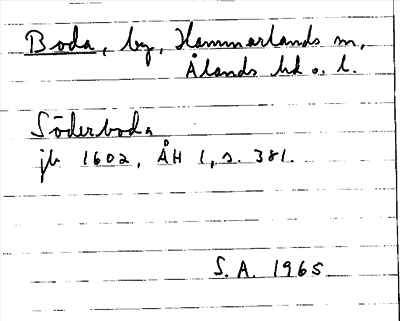 Boda, by, Hammarlands sn,
Ålands hd o. l.
Söderboda
jb 1602, ÅH 1, s. 381.
S. A. 1965